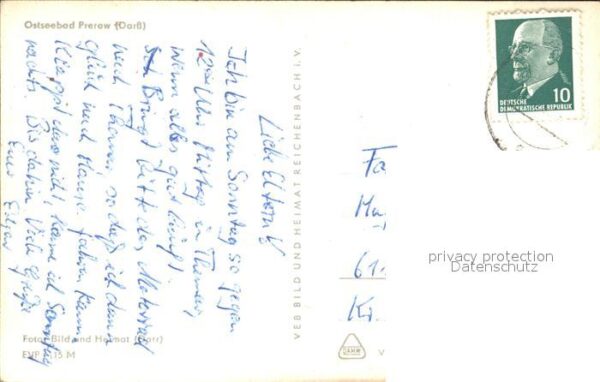 Ostseebad Prerow (Darß)
Liebe Eltern!
Ich bin am Sonntag so gegen
12 Uhr Mittag in Themar,
wenn alles gut klappt.
Bringt bitte das Material
nach Themar, so daß ich dann
gleich nach Hause fahren kann.
Klappt das nicht, komme ich Sonntag
nachts. Bis dahin Viele Grüße
Euer Edgar
VEB BILD UND HEIMAT REICHENBACH I. V.
Foto: Bild und Heimat (Darr)
EVP 0,15 M
10
DEUTSCHE
DEMOKRATISCHE REPUBLIK
Fa
61
Kr.
V
privacy protection
Datenschutz